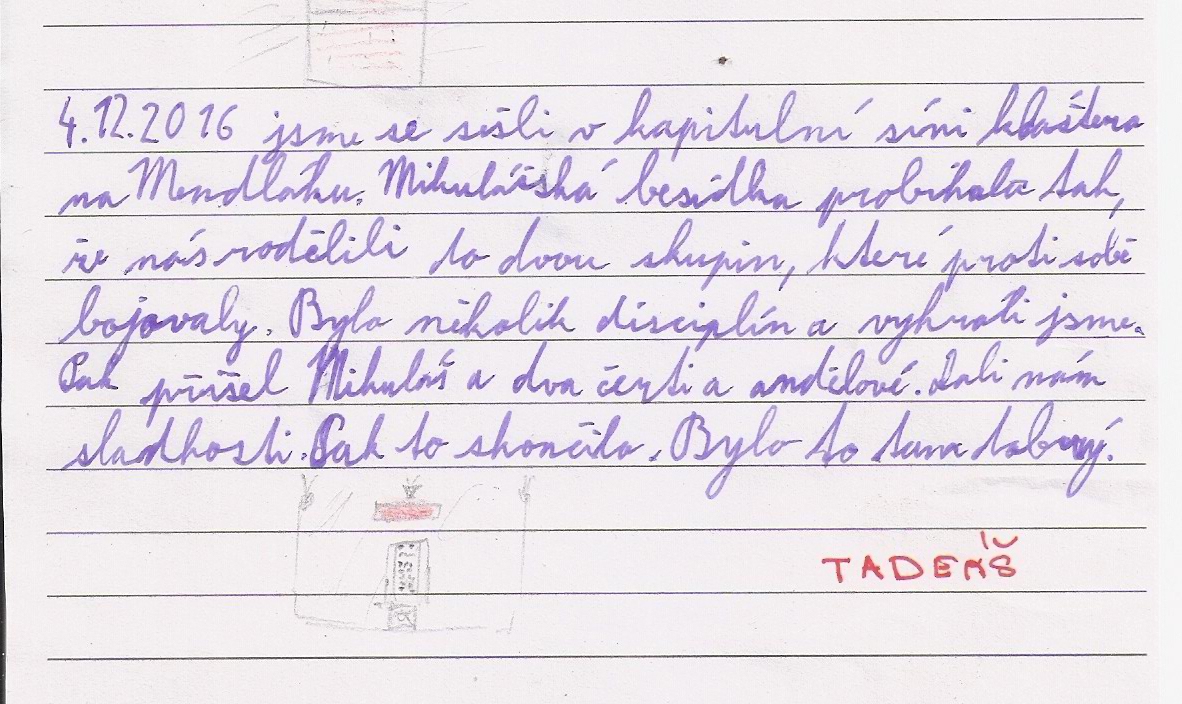 4.12.2016 jsme se sešli v kapitulní síni kláštera
na Mendláku. Mikulášská besídka probíhala tak,
že nás rodělili to dvou skupin, které proti sobě
bojovaly. Bylo několik disciplín a vyhráli jsme.
Pak přišel Mikuláš a dva čerti a andělové. Dali nám
sladkosti. Pak to skončilo. Bylo to tam dobrý.
TADEÁŠ